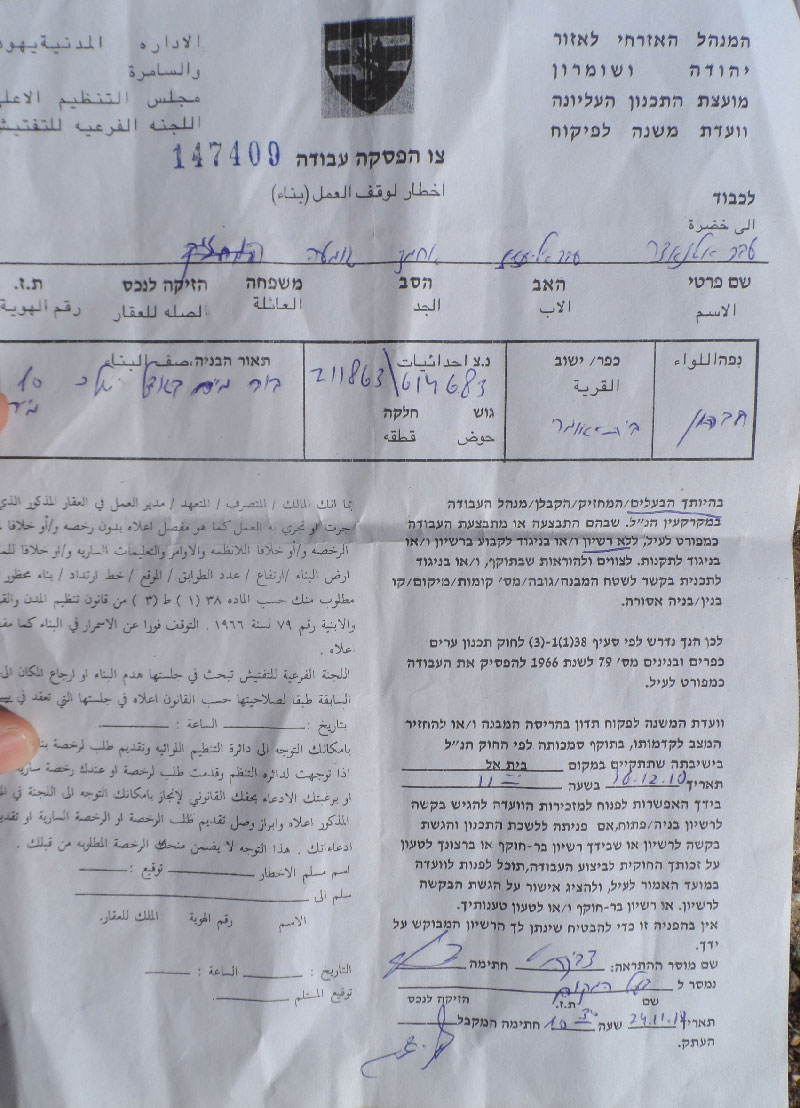 המנהל האזרחי לאזור
יהודה ושומרון
מועצת התכנון העליונה
וועדת משנה לפיקוח
الاداره المدنية يهو
والسامرة
مجلس التنظيم الاعل
اللجنه الفرعيه للتفتيش
צו הפסקה עבודה 147409
اخطار لوقف العمل (بناء)
לכבוד
الى حضرة
שם פרטי האב הסב משפחה הזיקה לנכס ת.ז.
الاسم الاب الجد العائلة الصله للعقار رقم الهوية
נפה اللواء
חברון
כפר/ ישוב
القرية
נ.צ احداثيات
211863\614683
גוש חלקה
حوض قطقه
תאור הבניה وصف البناء
בור מים 10
בהיותך הבעלים/המחזיק/הקבלן/מנהל העבודה
במקרקעין הנ"ל. שבהם התבצעה או מתבצעת העבודה
כמפורט לעיל, ללא רשיון ו/או בניגוד לקבוע ברשיון ו/או
בניגוד לתקנות. לצווים ולהוראות שבתוקף, ו/או בניגוד
לתכנית בקשר לשטח המבנה/גובה/מס' קומות/מיקום/קו
בנין/בניה אסורה.
לכן הנך נדרש לפי סעיף 38(1)-1(3) לחוק תכנון ערים
כפרים ובנינים מס' 79 לשנת 1966 להפסיק את העבודה
כמפורט לעיל.
וועדת המשנה לפקוח תדון בהריסת המבנה ו/או להחזיר
המצב לקדמותו, בתוקף סמכותה לפי החוק הנ"ל
בישיבתה שתתקיים במקום בית אל
תאריך 16.12.10 בשעה 11
בידך האפשרות לפנות למזכירות הוועדה להגיש בקשה
לרשיון בניה/פתוח,אם פניתה ללשכת התכנון והגשת
בקשה לרשיון או שבידך רשיון בר-חוקף או ברצונך לטעון
על זכותך החוקית לביצוע העבודה,תוכל לפנות לוועדה
במועד האמור לעיל, ולהציג אישור על הגשת הבקשה
לרשיון. או רשיון בר-חוקף ו/או לטעון טענותיך.
אין בהפניה זו כדי להבטיח שינתן לך הרשיון המבוקש על
ידך.
שם מוסר ההתראה: חתימה
נמסר ל בעל המקום
שם ת.ז. הזיקה לנכס
תאריך 24.11.10 שעה 10 חתימה המקבל
העתק.
بما انك المالك / المتصرف / المتعهد / مدير العمل في العقار المذكور الذي
جرت او تجري به العمل كما هو مفصل اعلاه بدون رخصه و/أو خلافا
الرخصه و/أو خلافا للانظمه والاوامر والتعليمات الساريه و/او خلافا
ارض البناء /ارتفاع / عدد الطوابق / الموقع / خط ارتداد / بناء محظور
مطلوب منك حسب الماده ٣٨ (١) ط (٣) من قانون تنظيم المدن والق
والابنية رقم ٧٩ لسنة ١٩٦٦ . التوقف فورا عن الاسمرار في البناء كما
اعلاه .
اللجنة الفرعية للتفتيش تبحث في جلستها هدم البناء او ارجاع المكان
السابقة طبقا لصلاحيتها حسب القانون اعلاه في جلستها التي تعقد في
بتاريخ : الساعة :
بامكانك التوجه الى دائرة التنظيم اللوائيه وتقديم طلب لرخصة
اذا توجهت لدائره التنظم وقدمت طلب لرخصة او عندك رخصة
او برغبتك الادعاء بحقك القانوني لإنجاز بامكانك التوجه الى اللجنة في
المذكور اعلاه وابراز وصل تقديم طلب الرخصة او الرخصة السارية او
ادعاءتك . هذا التوجه لا يضمن منحك الرخصة المطلوبه من قبلك .
اسم مسلم الاخطار توقيع :
سلم الى
الاسم رقم الهوية الملك للعقار.
التاريخ : الساعة :
توقيع المستلم